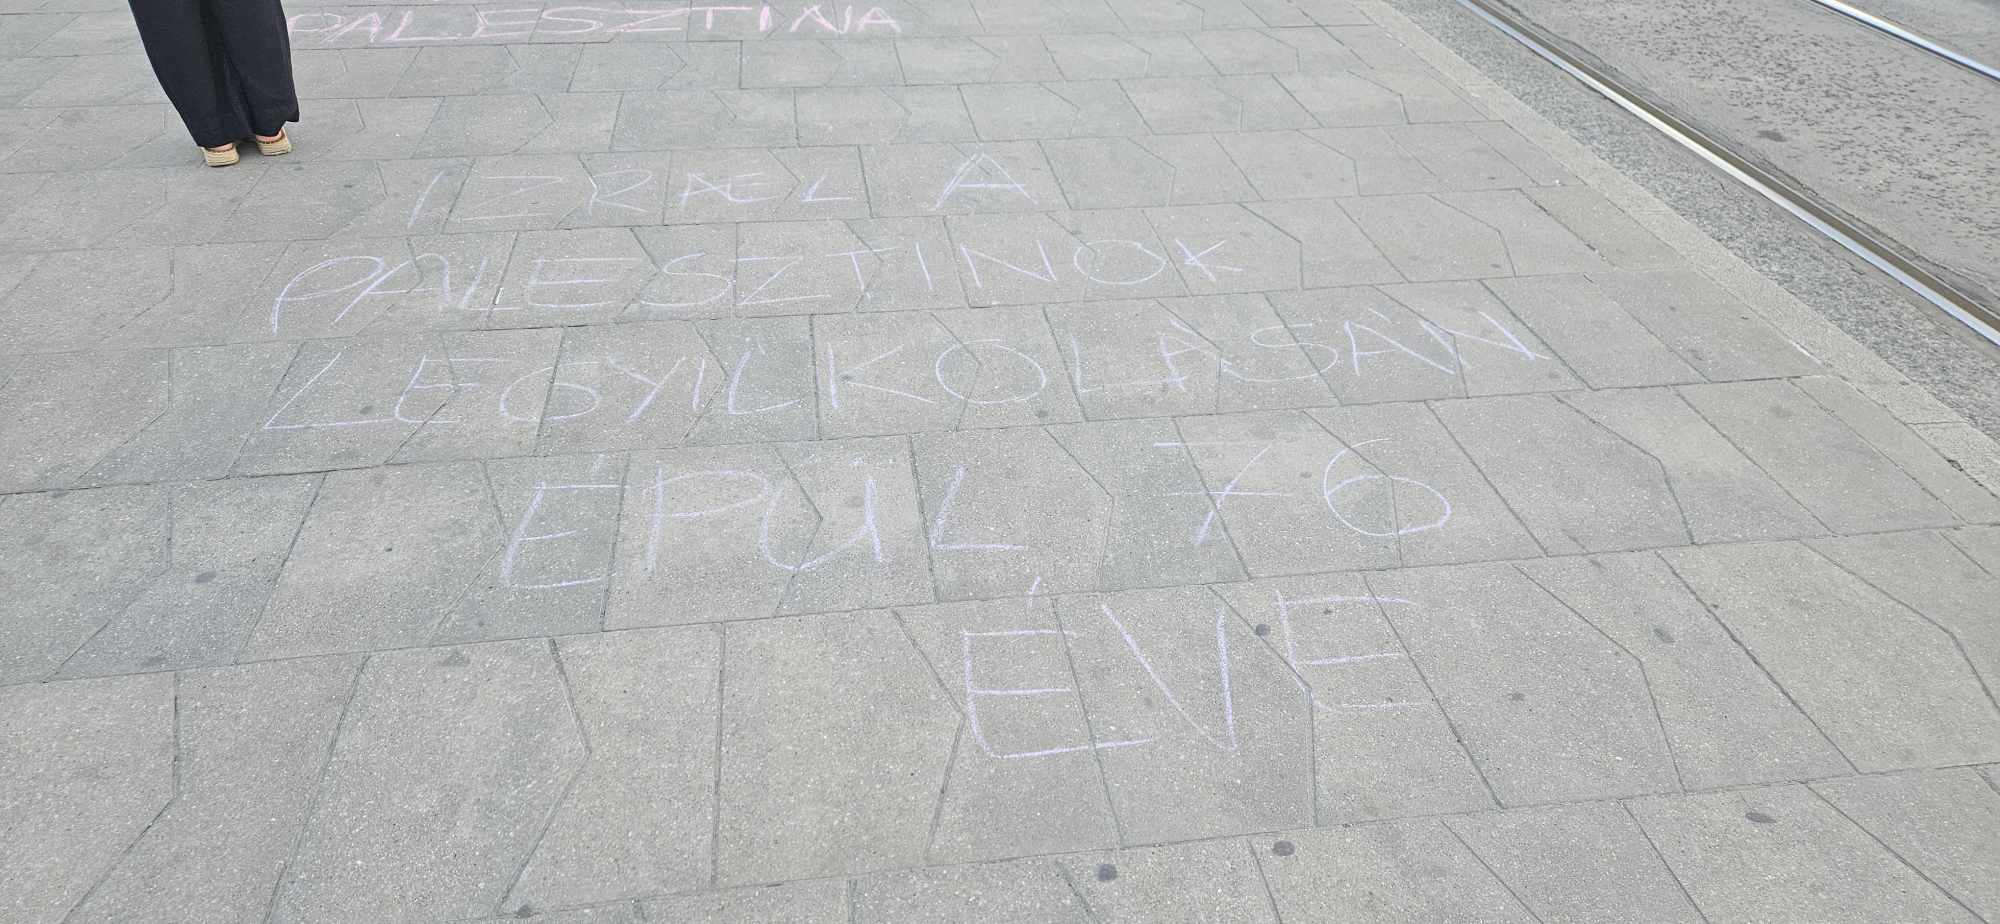 PALESZTINA
IZRAEL A
PALESZTINOK
LEGYILKOLÁSÁN
ÉPÜL 76
ÉVE